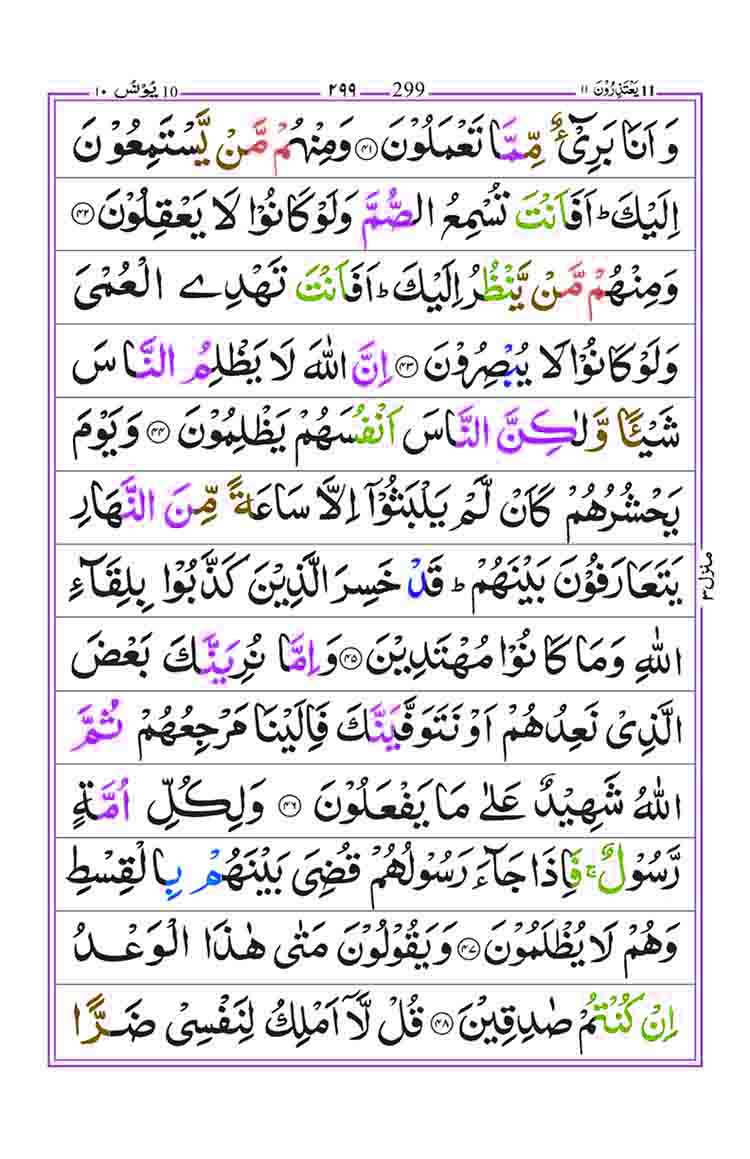 ١٠ يُوْنُس 10 ٢٩٩ — 299 ١١ يَعْتَذِرُوْنَ 11
وَ اَنَا بَرِیْٓءٌ مِّمَّا تَعْمَلُوْنَ ﴿۴۱﴾ وَمِنْهُمْ مَّنْ یَّسْتَمِعُوْنَ
اِلَیْكَ ؕ اَفَاَنْتَ تُسْمِعُ الصُّمَّ وَلَوْ كَانُوْا لَا یَعْقِلُوْنَ ﴿۴۲﴾
وَمِنْهُمْ مَّنْ یَّنْظُرُ اِلَیْكَ ؕ اَفَاَنْتَ تَهْدِے الْعُمْیَ
وَلَوْ كَانُوْا لَا یُبْصِرُوْنَ ﴿۴۳﴾ اِنَّ اللّٰهَ لَا یَظْلِمُ النَّاسَ
شَیْـًٔا وَّلٰكِنَّ النَّاسَ اَنْفُسَهُمْ یَظْلِمُوْنَ ﴿۴۴﴾ وَیَوْمَ
یَحْشُرُهُمْ كَاَنْ لَّمْ یَلْبَثُوْۤا اِلَّا سَاعَةً مِّنَ النَّهَارِ
یَتَعَارَفُوْنَ بَیْنَهُمْ ؕ قَدْ خَسِرَ الَّذِیْنَ كَذَّبُوْا بِلِقَآءِ
اللّٰهِ وَمَا كَانُوْا مُهْتَدِیْنَ ﴿۴۵﴾ وَاِمَّا نُرِیَنَّكَ بَعْضَ
الَّذِیْ نَعِدُهُمْ اَوْ نَتَوَفَّیَنَّكَ فَاِلَیْنَا مَرْجِعُهُمْ ثُمَّ
اللّٰهُ شَهِیْدٌ عَلٰی مَا یَفْعَلُوْنَ ﴿۴۶﴾ وَلِكُلِّ اُمَّةٍ
رَّسُوْلٌ ۚ فَاِذَا جَآءَ رَسُوْلُهُمْ قُضِیَ بَیْنَهُمْ بِالْقِسْطِ
وَهُمْ لَا یُظْلَمُوْنَ ﴿۴۷﴾ وَیَقُوْلُوْنَ مَتٰی هٰذَا الْوَعْدُ
اِنْ كُنْتُمْ صٰدِقِیْنَ ﴿۴۸﴾ قُلْ لَّاۤ اَمْلِكُ لِنَفْسِیْ ضَرًّا
منزل ٣